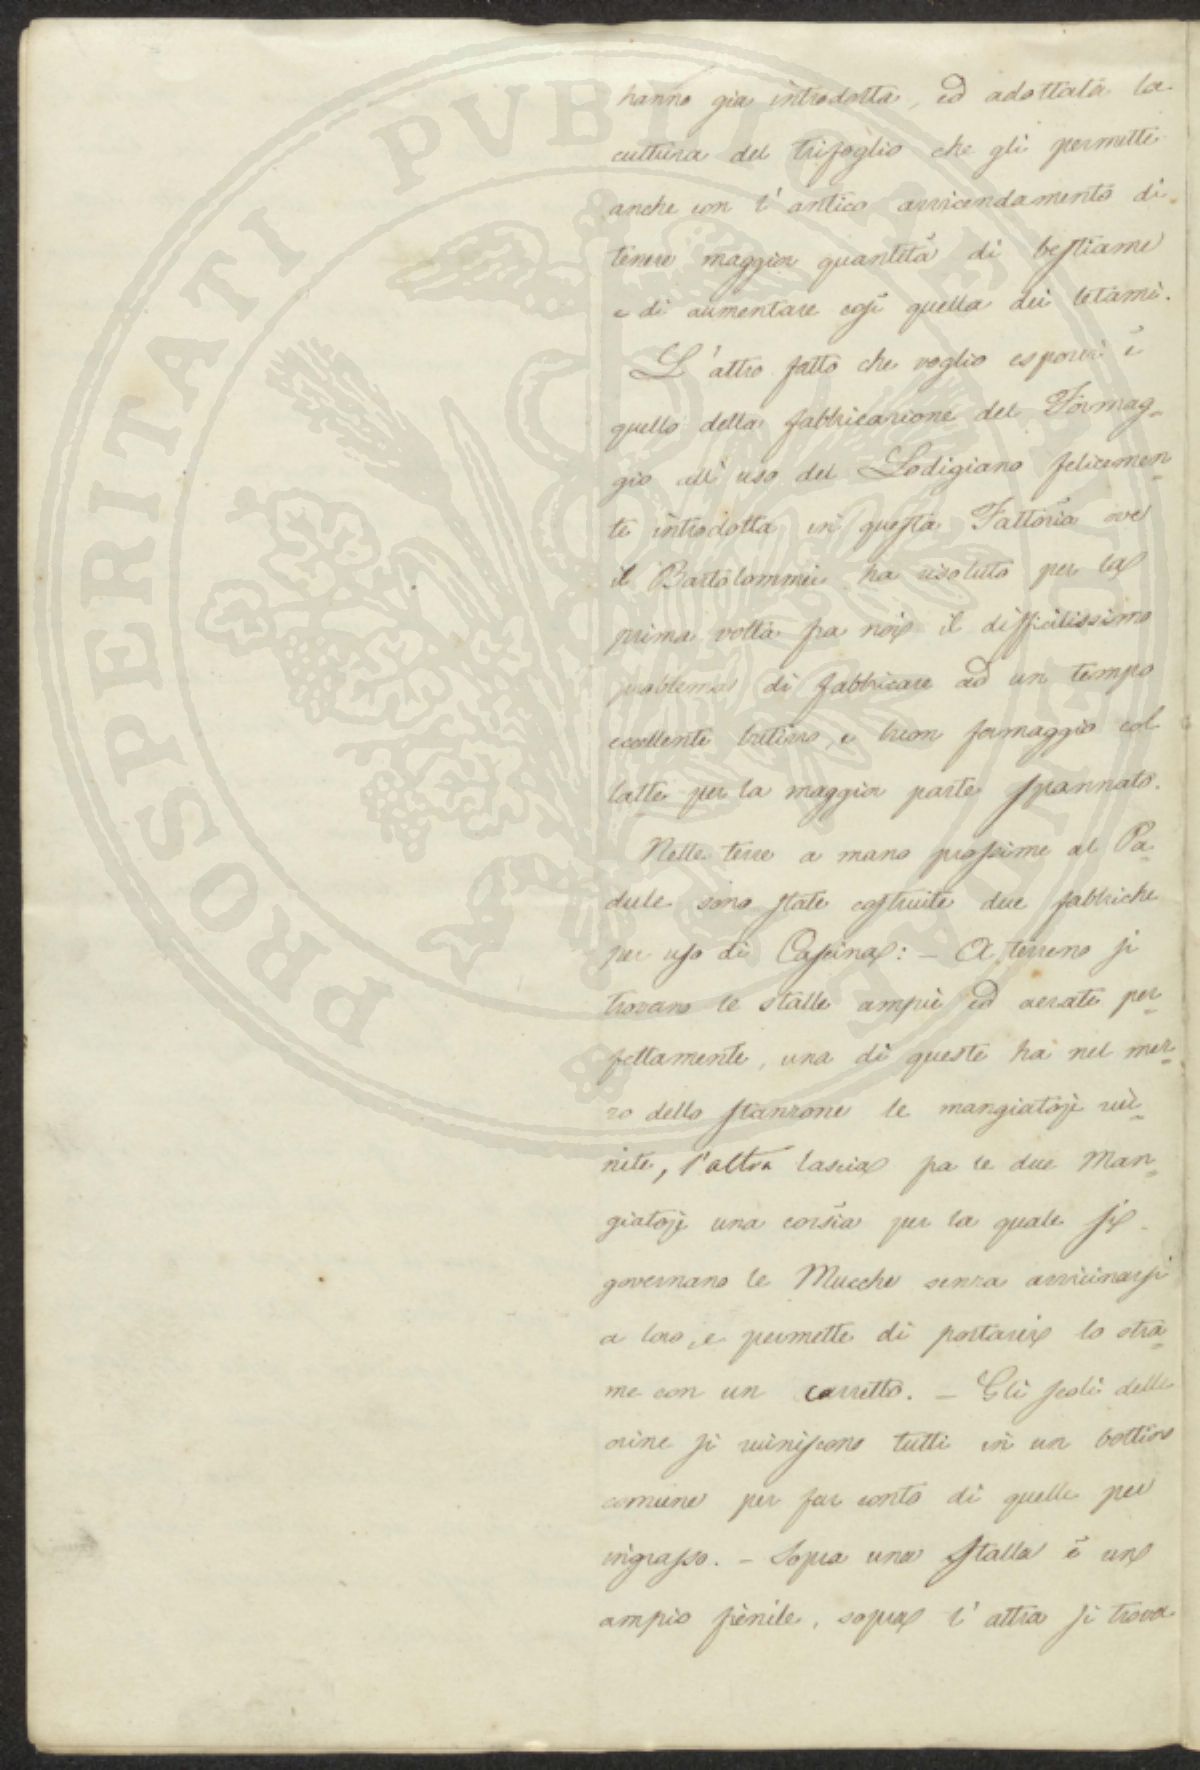 hanno già introdotta, ed adottata la
cultura del trifoglio che gli permette
anche con l'antico avvicendamento di
tenere maggior quantità di bestiame
e di aumentare così quella dei letami.
L'altro fatto che voglio esporvi è
quello della fabbricazione del Formag=
gio all'uso del Lodigiano felicemen=
te introdotta in questa Fattoria ove
il Bartolommei ha risoluto per la
prima volta fra noi il difficilissimo
problema di fabbricare ad un tempo
eccellente butirro, e buon formaggio col
latte per la maggior parte spannato.
Nelle terre a mano prossime al Pa=
dule sono state costruite due fabbriche
per uso di Cascina: – A terreno si
trovano le stalle ampie ed aerate per=
fettamente, una di queste ha nel mez=
zo dello stanzone le mangiatoje riu=
nite, l'altra lascia fra le due Man=
giatoje una corsia per la quale si
governano le Mucche senza avvicinarsi
a loro, e permette di portarvi lo stra=
me con un carretto. – Gli scoli delle
orine si riuniscono tutti in un bottino
comune per far conto di quelle per
ingrasso. – Sopra una stalla è un
ampio fienile, sopra l'altra si trova
PUBLICAE
PROSPERITATI